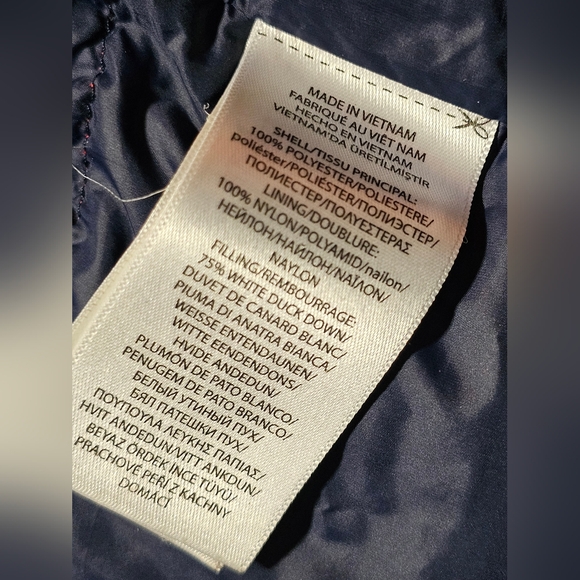 MADE IN VIETNAM
FABRIQUÉ AU VIÊT NAM
HECHO EN VIETNAM
VIETNAM'DA ÜRETİLMİŞTİR
SHELL/TISSU PRINCIPAL:
100% POLYESTER/POLIESTERE/
poliéster/POLIESTER/ПОЛИЭСТЕР/
ПОЛИЕСТЕР/ΠΟΛΥΕΣΤΕΡΑΣ
LINING/DOUBLURE:
100% NYLON/POLYAMID/nailon/
НЕЙЛОН/НАЙЛОН/ΝΑΪΛΟΝ/
NAYLON
FILLING/REMBOURRAGE:
75% WHITE DUCK DOWN/
DUVET DE CANARD BLANC/
PIUMA DI ANATRA BIANCA/
WEISSE ENTENDAUNEN/
WITTE EENDENDONS/
HVIDE ANDEDUN/
PLUMÓN DE PATO BLANCO/
PENUGEM DE PATO BRANCO/
БЕЛЫЙ УТИНЫЙ ПУХ/
БЯЛ ПАТЕШКИ ПУХ/
ΠΟΥΠΟΥΛΑ ΛΕΥΚΗΣ ΠΑΠΙΑΣ/
HVIT ANDEDUN/VITT ANKDUN/
BEYAZ ÖRDEK İNCE TÜYÜ/
PRACHOVÉ PEŘÍ Z KACHNY
DOMÁCÍ